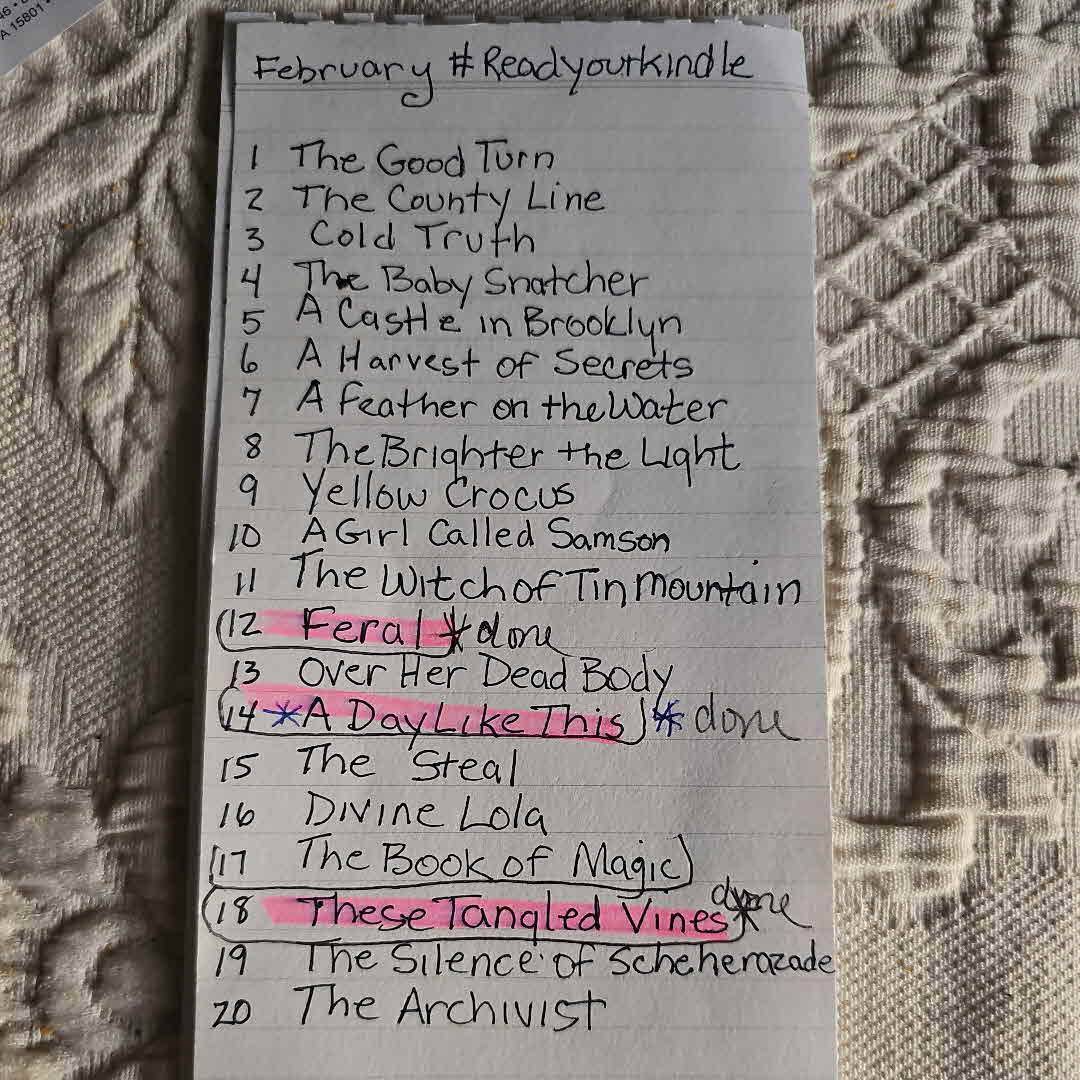 46
A 15801
February #Readyourkindle
1 The Good Turn
2 The County Line
3 Cold Truth
4 The Baby Snatcher
5 A Castle in Brooklyn
6 A Harvest of Secrets
7 A Feather on the Water
8 The Brighter the Light
9 Yellow Crocus
10 A Girl Called Samson
11 The Witch of Tin Mountain
12 Feral * done
13 Over Her Dead Body
14 * A Day Like This * done
15 The Steal
16 Divine Lola
17 The Book of Magic
18 These Tangled Vines * done
19 The Silence of Scheherazade
20 The Archivist